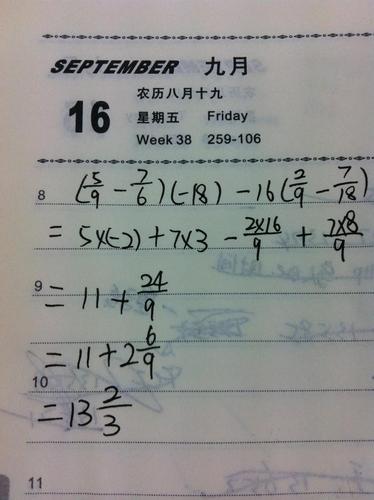 SEPTEMBER 九月
16
农历八月十九
星期五 Friday
Week 38 259-106
8 (5/9 - 7/6)(-18) - 16(2/9 - 7/18)
= 5×(-2) + 7×3 - 2×16/9 + 7×8/9
9 = 11 + 24/9
= 11 + 2 6/9
10
= 13 2/3
11